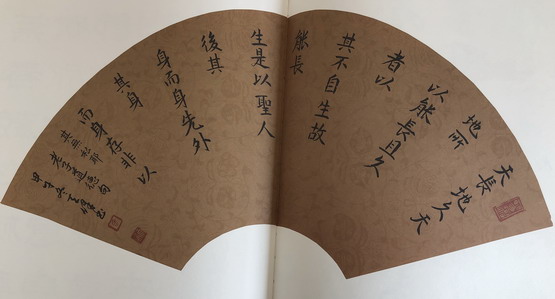 天長地久天
地所
以能長且久
者以
其不自生故
能長
生是以聖人
後其
身而身先外
其身
而身存非以
其無私耶
老子道德句
甲冬王書